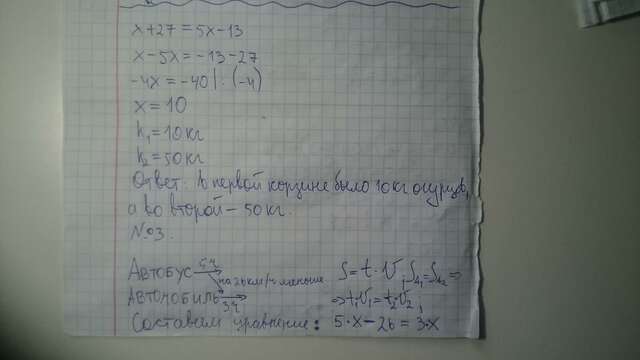 x+27=5x-13
x-5x=-13-27
-4x=-40|:(-4)
x=10
k₁=10кг
k₂=50кг
Ответ: В первой корзине было 10кг огурцов,
а во второй – 50кг.
№3.
Автобус 5ч → на км/ч меньше S=t·V; S₁=S₂ ⇒
Автомобиль 3ч → ⇒t₁V₁=t₂V₂;
Составим уравнение: 5·x-26=3·x